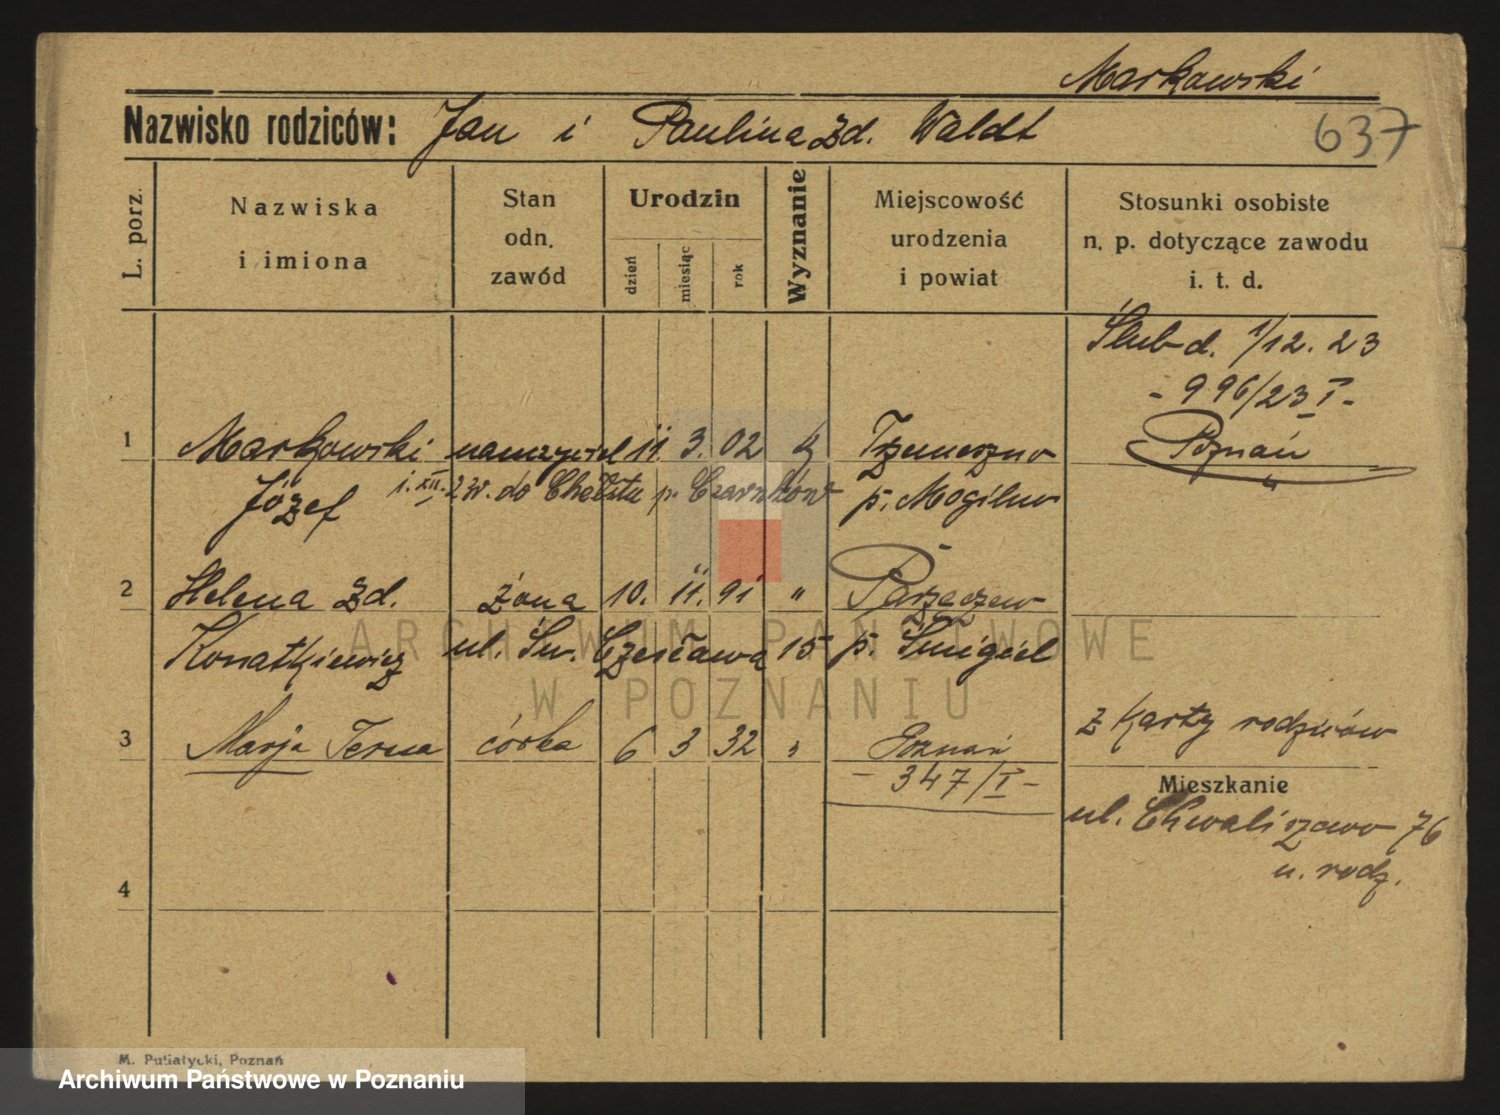 Markowski
Nazwisko rodziców: Jan i Paulina zd. Waldt
637
L. porz.
Nazwiska
i imiona
Stan
odn.
zawód
Urodzin
dzień
miesiąc
rok
Wyznanie
Miejscowość
urodzenia
i powiat
Stosunki osobiste
n. p. dotyczące zawodu
i. t. d.
Ślub d. 1/12. 23
- 996/23 I -
Poznań
1 Markowski nauczyciel 11. 3. 02 Trzemeszno
Józef do p. Czarnków p. Mogilno
2 Helena zd. żona 10. 11. 91 " Parzęczew
Konatkiewicz ul. Św. Czesława 15 p. Śmigiel
3 Marja Teresa córka 6 3 32 " Poznań
- 347/I -
z karty rodziców
Mieszkanie
ul. Chwaliszewo 76
u. rodz.
4
M. Putiatycki, Poznań
ARCHIWUM PAŃSTWOWE
W POZNANIU
Archiwum Państwowe w Poznaniu